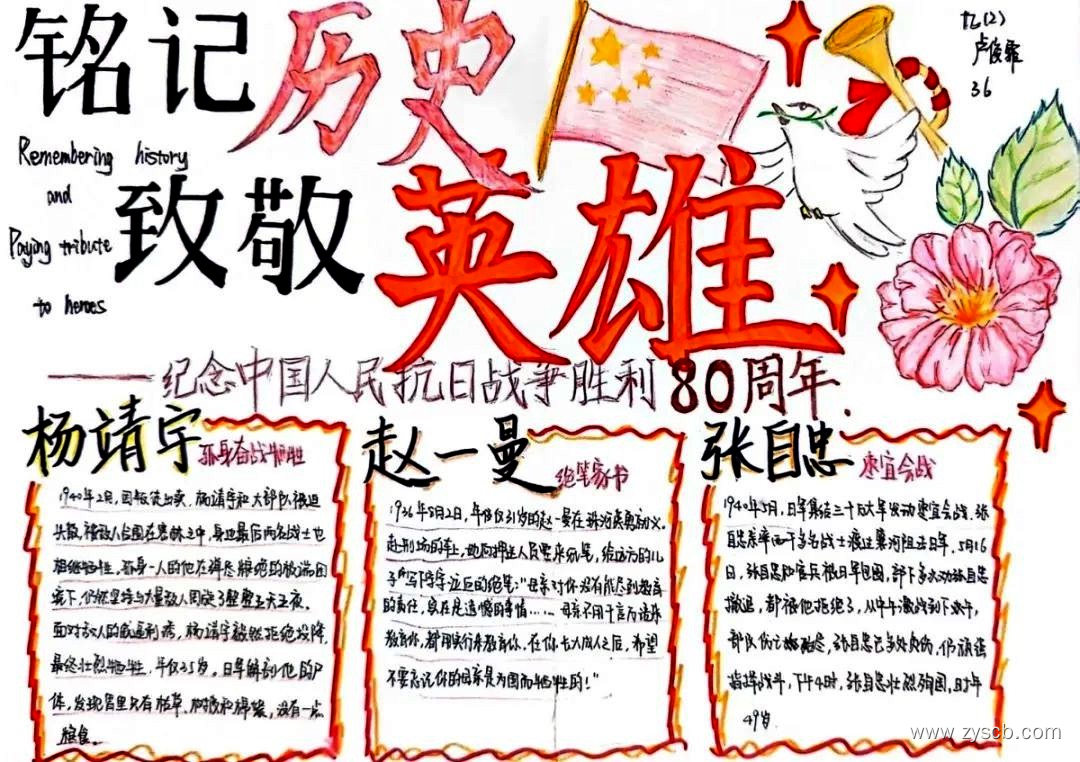 铭记历史
九(2)
卢俊霏
36
Remembering history
and
Paying tribute
to heroes
致敬英雄
——纪念中国人民抗日战争胜利80周年.
杨靖宇
孤身奋战
1940年2月,因叛徒出卖,杨靖宇和大部队被迫
失散,被敌人包围在密林之中,身边最后两名战士也
相继牺牲,孤身一人的他在弹尽粮绝的极端困
境下,仍然坚持与大量敌人周旋了整整五天五夜。
面对敌人的威逼利诱,杨靖宇毅然拒绝投降,
最终壮烈牺牲,年仅35岁。日军解剖他的尸
体,发现胃里只有枯草、树皮和棉絮,没有一点
粮食。
赵一曼
绝笔家书
1936年8月2日,年仅31岁的赵一曼在珠河英勇就义。
赴刑场的车上,她向押送人员要来纸笔,给远方的儿
子写下字字泣血的绝笔:"母亲对你没有能尽到教育
的责任,实在是遗憾的事情……母亲不用千言万语来
教育你,就用实行来教育你。在你长大成人之后,希望
不要忘记你的母亲是为国而牺牲的!"
张自忠
枣宜会战
1940年5月,日军集结三十万大军发动枣宜会战。张
自忠亲率两千多名战士渡过襄河阻击日军。5月16
日,张自忠和官兵被日军包围,部下多次劝张自忠
撤退,都被他拒绝了,从中午激战到下午,
部队伤亡殆尽,张自忠已多处负伤,仍顽强
指挥战斗,下午4时,张自忠壮烈殉国,时年
49岁
www.zyscb.com